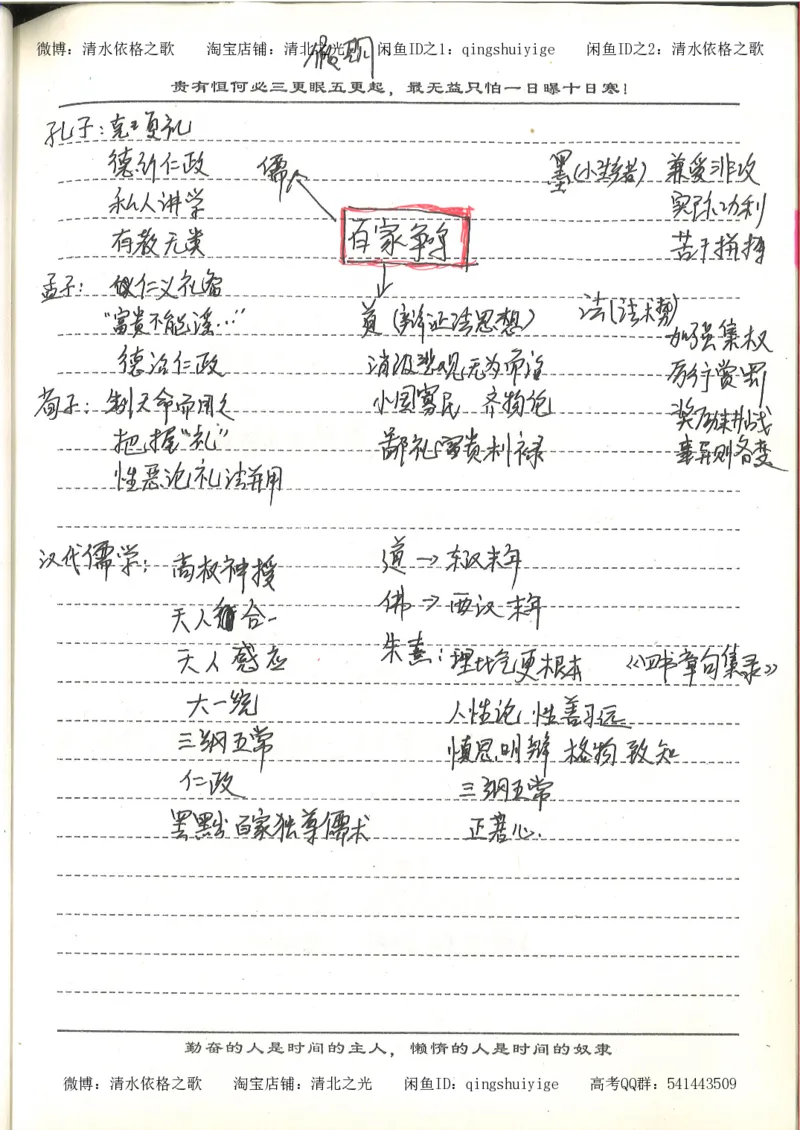 微博：清水依格之歌 淘宝店铺：清北之光 闲鱼ID之1：qingshuiyige 闲鱼ID之2：清水依格之歌
贵有恒何必三更眠五更起，最无益只怕一日曝十日寒！
孔子：克己复礼
德 仁政
私人讲学
有教无类
儒
百家争鸣
墨(小 者) 兼爱非攻
实际功利
苦干拼搏
孟子： 仁义礼智
“富贵不能淫…”
德治仁政
荀子：制天命而用之
把握“礼”
性恶论礼法并用
道(辩证法思想)
消极悲观无为而治
小国寡民 齐物论
鄙礼 富贵利禄
法(法术势)
加强集权
厉行赏罚
奖励耕战
事异则备变
汉代儒学：君权神授
天人合一
天人感应
大一统
三纲五常
仁政
罢黜百家独尊儒术
道→东汉末年
佛→西汉末年
朱熹：理比气更根本 《四书章句集录》
人性论 性善习远
慎思明辨 格物致知
三纲五常
正君心.
勤奋的人是时间的主人，懒惰的人是时间的奴隶
微博：清水依格之歌 淘宝店铺：清北之光 闲鱼ID：qingshuiyige 高考QQ群：541443509